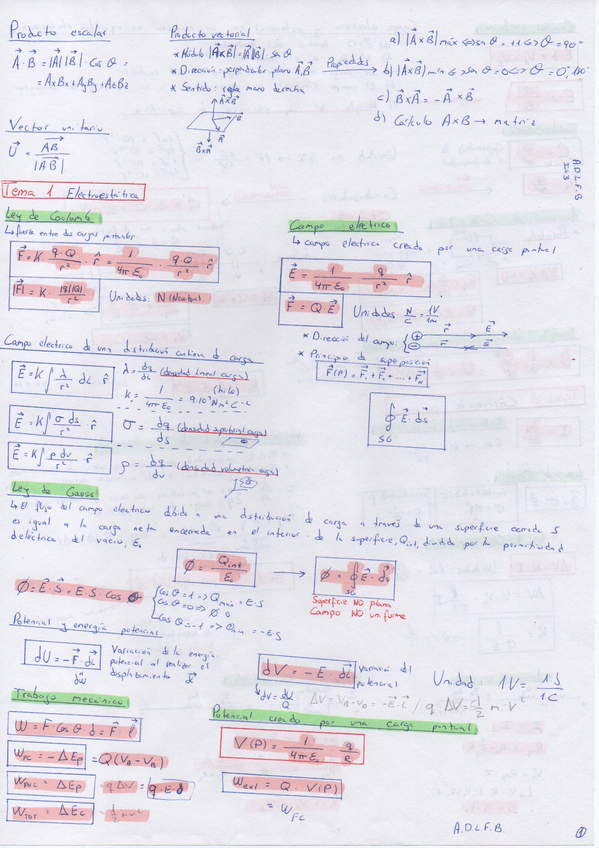 Producto escalar
A⃗ · B⃗ = |A⃗||B⃗| · Cos θ =
= AxBx + AyBy + AzBz
Vector unitario
U⃗ = AB⃗ / |AB⃗|
Producto vectorial
* Módulo |A⃗xB⃗| = |A⃗||B⃗| sen θ
* Dirección: perpendicular plano A⃗,B⃗
* Sentido: regla mano derecha
A⃗xB⃗
B⃗
A⃗
B⃗xA⃗
Propiedades
a) |A⃗xB⃗| máx <=> sen θ = ±1 <=> θ = 90º
b) |A⃗xB⃗| mín <=> sen θ = 0 <=> θ = 0º, 180º
c) B⃗xA⃗ = -A⃗xB⃗
d) Cálculo AxB → matriz
A.D.L.F.B
Tema 1 Electroestática
Ley de Coulomb
↳ fuerza entre dos cargas puntuales
F⃗ = K q·Q / r² · r̂ = 1 / 4πε₀ · q·Q / r² · r̂
|F⃗| = K · |q||Q| / r²
Unidades: N (Newton)
Campo eléctrico
↳ campo electrico creado por una carga puntual
E⃗ = 1 / 4πε₀ · q / r² · r̂
F⃗ = Q E⃗
Unidades: N/C = 1V/1m
* Dirección del campo: ⊕ r⃗ E⃗
⊖ F⃗ E⃗
* Principio de superposición
F⃗(P) = F⃗₁ + F⃗₂ + ... + F⃗N
∮ E⃗ · ds⃗
SG
Campo electrico de una distribución continua de carga
E⃗ = K ∫ λ / r² dL · r̂
λ = dq / dL (densidad lineal carga)
(hilo)
k = 1 / 4πε₀ = 9·10⁹ Nm²C⁻²
E⃗ = K ∫ σ ds / r² · r̂
σ = dq / ds (densidad superficial carga)
E⃗ = K ∫ ρ dv / r² · r̂
ρ = dq / dv (densidad volumétrica carga)
Ley de Gauss
↳ El flujo del campo electrico debido a una distribución de carga a través de una superficie cerrada S
es igual a la carga neta encerrada en el interior de la superficie, Qint, dividida por la permitividad
dieléctrica del vacio, ε₀
Ø = Qint / ε₀ → Ø = ∮ E⃗ · ds⃗
SG
Superficie NO plana
Campo NO uniforme
Ø = E⃗ · S⃗ = E S · Cos θ
Cos θ = 1 => Ø máx = E·S
Cos θ = 0 => Ø 0
Cos θ = -1 => Ø mín = -E·S
Potencial y energía potencial
dU = -F⃗ · dL⃗
Variación de la energía
potencial al realizar el
desplazamiento
dV = -E dL⃗
Variación del
potencial
Unidad 1V = 1J / 1C
↳ dV = dU / Q
ΔV = VB - VA = -E⃗·L⃗ / q·ΔV = 1/2 m·V²
Trabajo mecánico
W = F Cos θ d = F⃗ · l⃗
WFC = -ΔEp = Q(VA - VB)
WFNC = ΔEp = q ΔV = q·E·d
WTOT = ΔEc = 1/2 mv²
Potencial creado por una carga puntual
V(P) = 1 / 4πε₀ · q / R
Wext = Q · V(P)
= WFC
A.D.L.F.B.
1